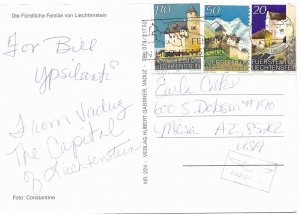 Die Fürstliche Familie von Liechtenstein
110
50
20
FÜRSTENTUM
LIECHTENSTEIN
FÜRSTENTUM
LIECHTENSTEIN
FÜRSTENTUM
LIECHTENSTEIN
For Bill
Ypsilanti
From Vaduz
The Capital
of Liechtenstein
NR. 204 - VERLAG HUBERT GASSNER, VADUZ
600 S. Dobson #190
Mesa AZ, 85202
USA
Foto: Constantine